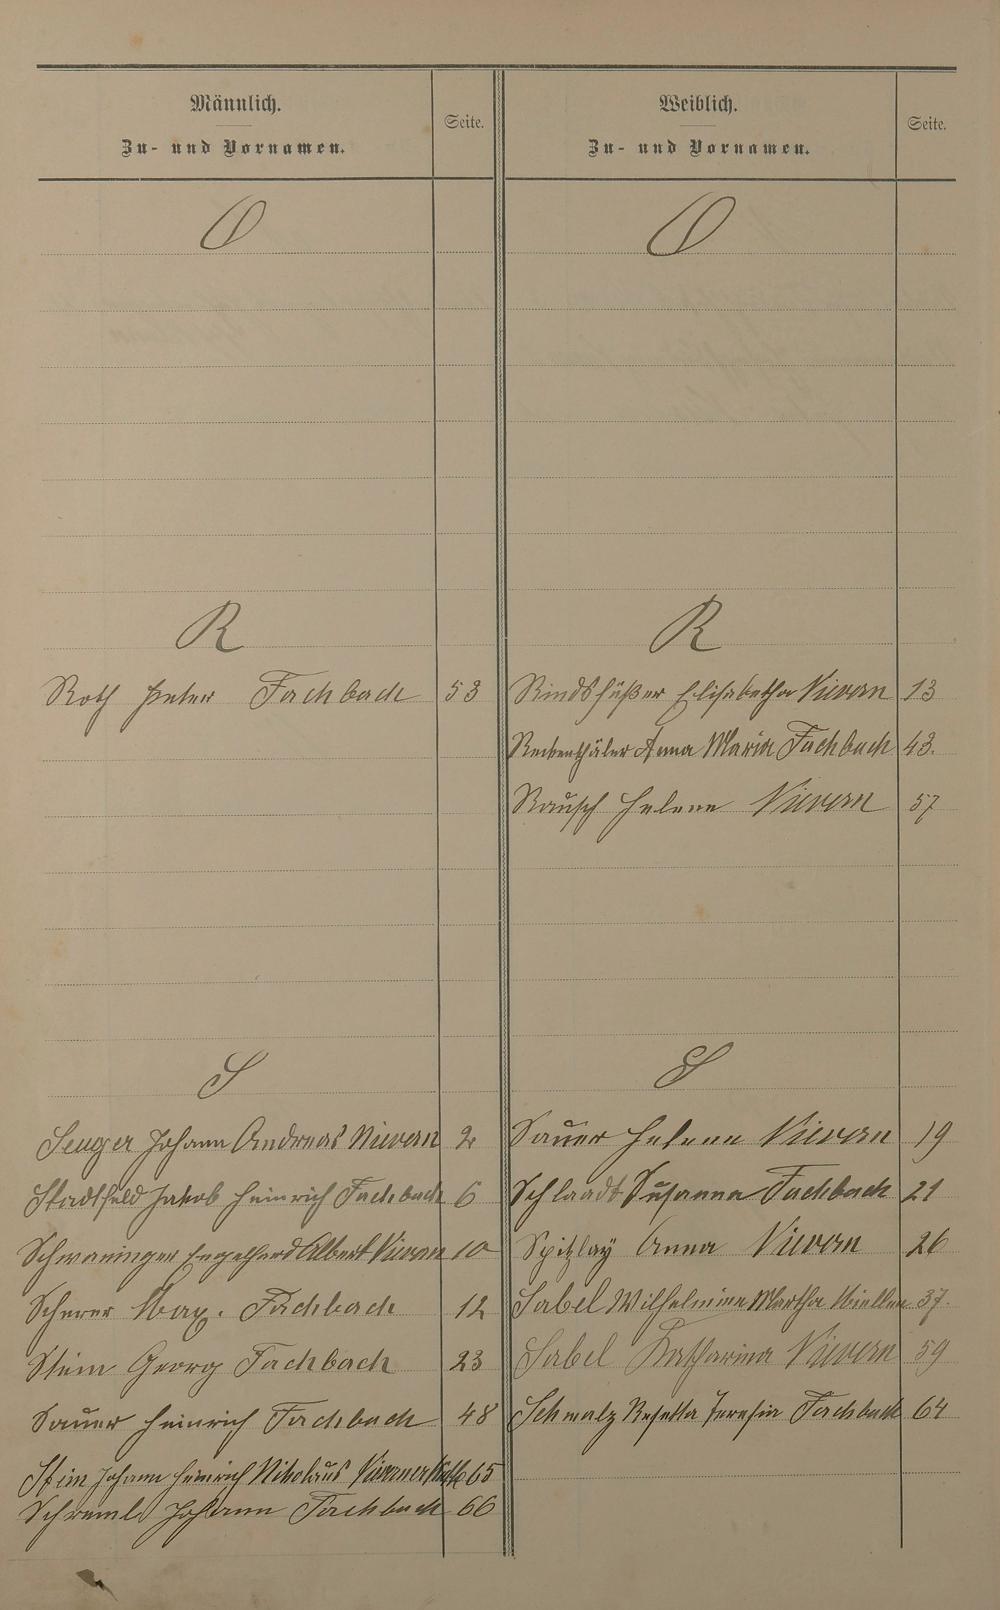 Männlich.
Zu- und Vornamen.
Seite.
O
R
Roth Peter Fachbach 53
S
Senger Johann Andreas Nievern 2
Stadtfeld Jakob Heinrich Fachbach 6
Schwaninger Engelhard Albert Nievern 10
Scherer Max. Fachbach 12
Stein Georg Fachbach 23
Sauer Heinrich Fachbach 48
Stein Johann Heinrich Nikolaus 65
Johann Fachbach 66
Weiblich.
Zu- und Vornamen.
Seite.
O
R
Rindsfüßer Elisabetha Nievern 13
Rebenthäler Anna Maria Fachbach 43.
Rausch Helene Nievern 57
S
Sauer Helene Nievern 19
Schlaadt Susanna Fachbach 21
Spitzlay Anna Nievern 26
Sabel Wilhelmine Martha 37.
Sabel Katharina Nievern 59
Schmalz Fachbach 64